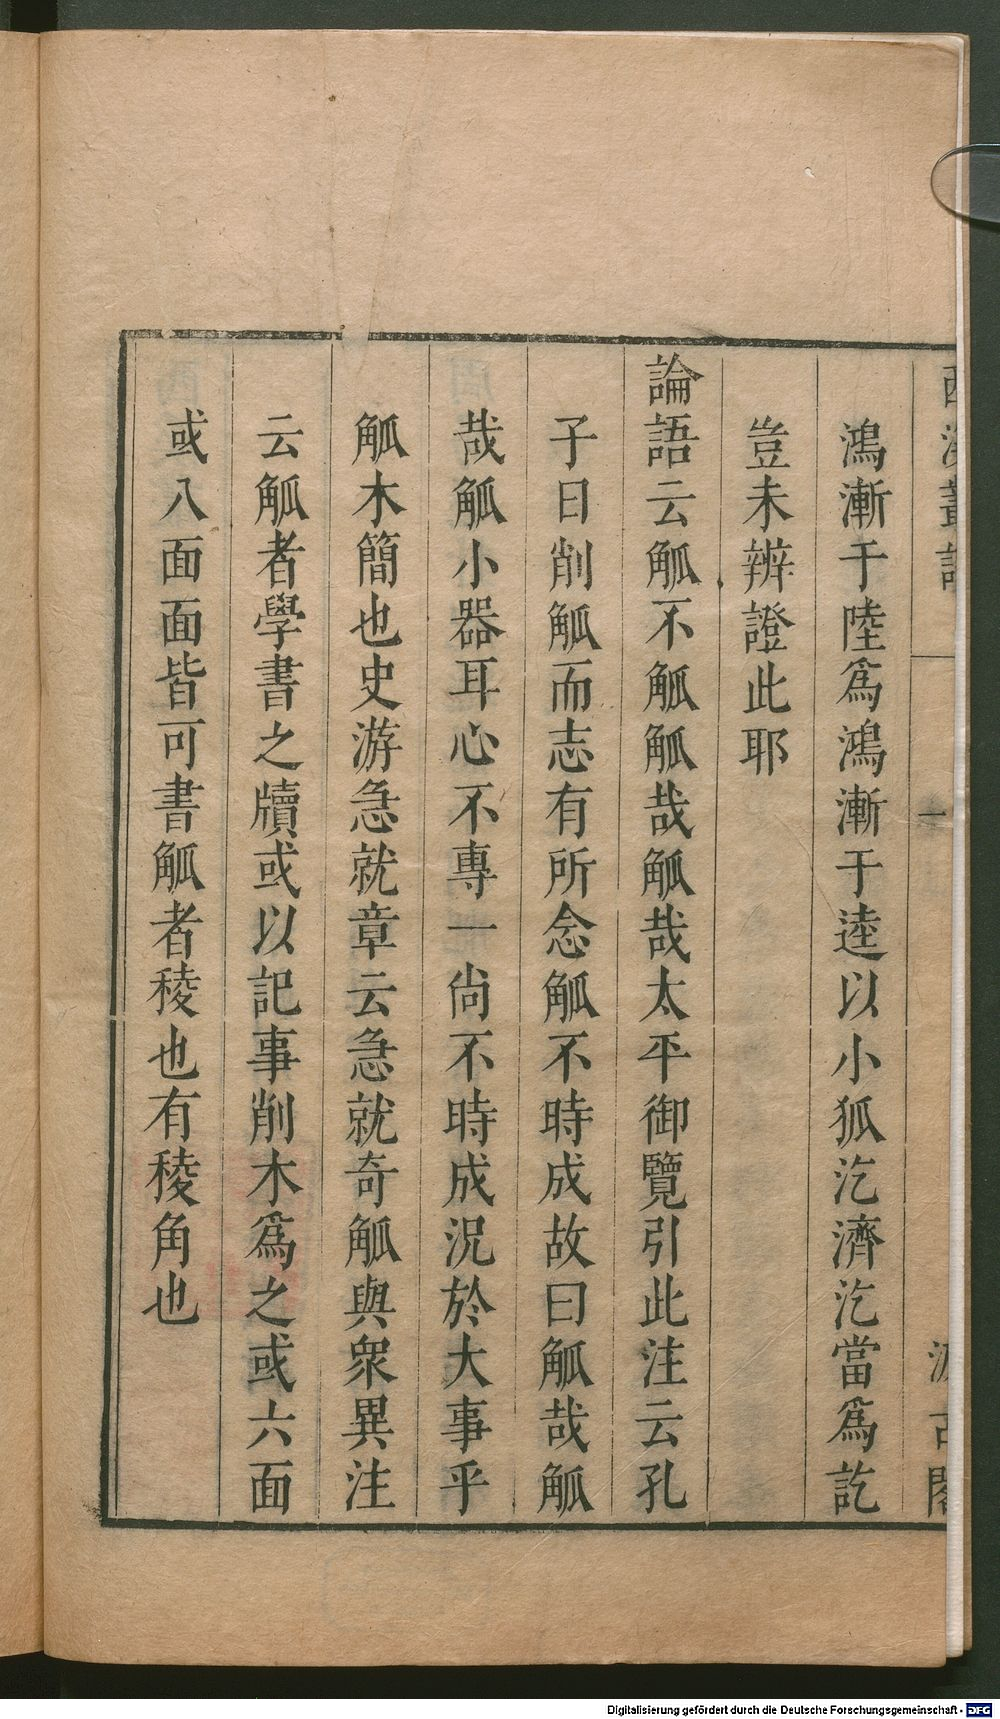 西溪叢語 一 汲古閣
鴻漸于陸爲鴻漸于逵以小狐汔濟汔當爲訖
豈未辨證此耶
論語云觚不觚觚哉觚哉太平御覽引此注云孔
子曰削觚而志有所念觚不時成故曰觚哉觚
哉觚小器耳心不專一尚不時成況於大事乎
觚木簡也史游急就章云急就奇觚與衆異注
云觚者學書之牘或以記事削木爲之或六面
或八面面皆可書觚者稜也有稜角也
Digitalisierung gefördert durch die Deutsche Forschungsgemeinschaft - DFG